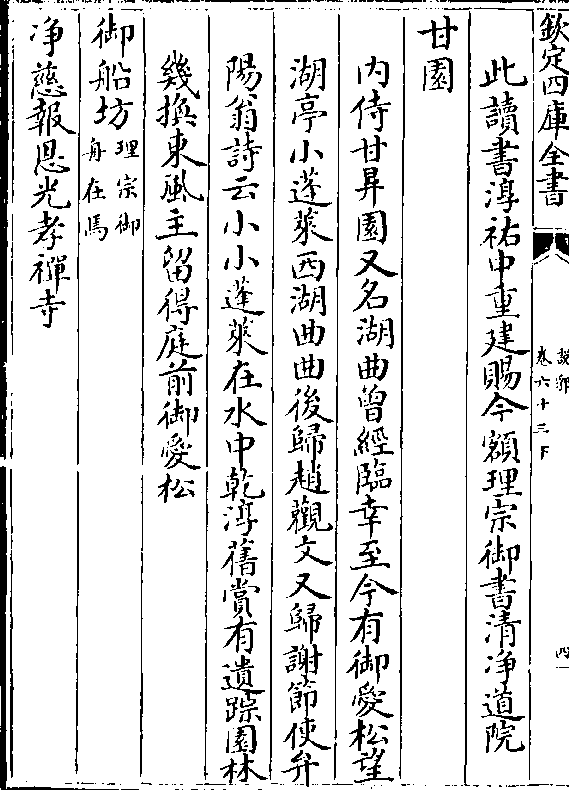 欽定四庫全書
說郛
卷六十三下
四一
此讀書淳祐中重建賜今額理宗御書清浄道院
甘園
内侍甘昇園又名湖曲曽經臨幸至今有御愛松望
湖亭小蓬萊西湖曲曲後歸趙觀文又歸謝節使弁
陽翁詩云小小蓬萊在水中乾淳舊賞有遺踪園林
幾換東風主留得庭前御愛松
御船坊理宗御
舟在焉
浄慈報恩光孝禪寺